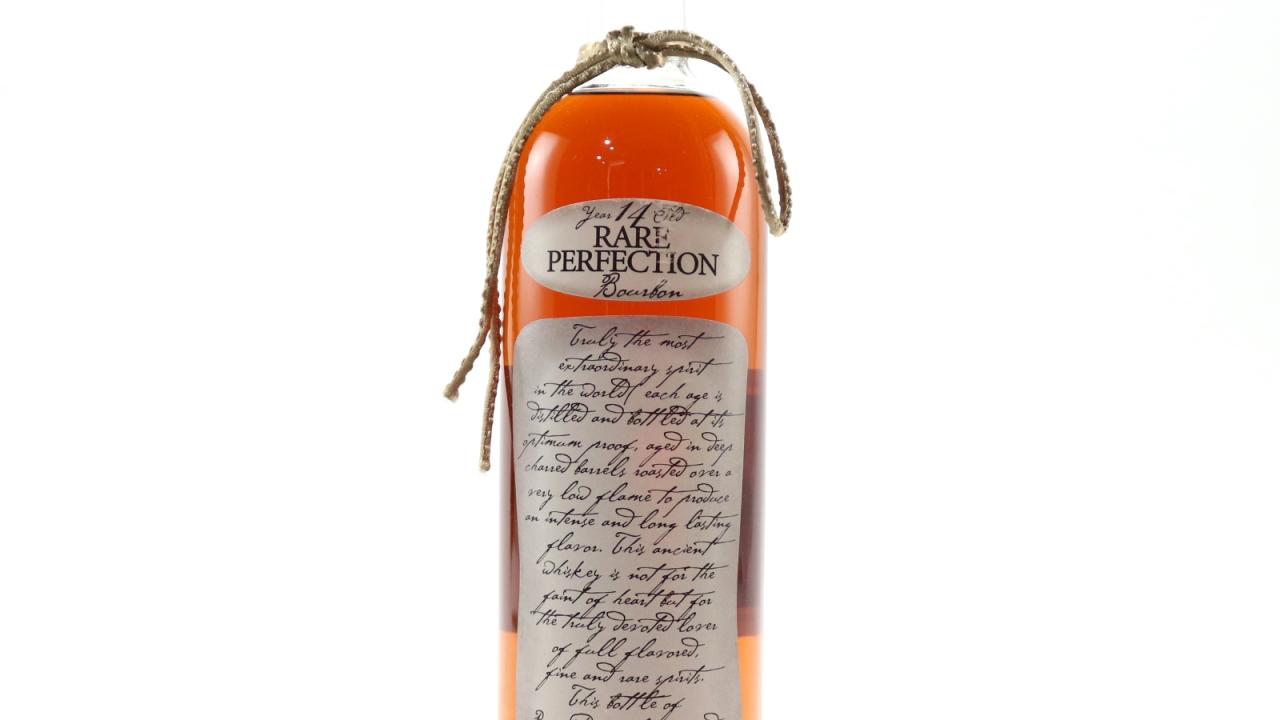 Year 14 Old
RARE
PERFECTION
Bourbon
Truly the most
extraordinary spirit
in the world( each age is
distilled and bottled at its
optimum proof, aged in deep
charred barrels roasted over a
very low flame to produce
an intense and long lasting
flavor. This ancient
whiskey is not for the
faint of heart but for
the truly devoted lover
of full flavored,
fine and rare spirits.
This bottle of